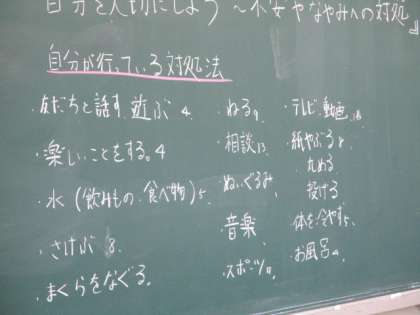 自分を大切にしよう～不安やなやみへの対処』
自分が行っている対処法
・友だちと話す、遊ぶ 4
・楽しいことをする。4
・水(飲みもの、食べ物)5
・さけぶ 8
・まくらをなぐる。
・ねる9
・相談13
・ぬいぐるみ
・音楽
・スポーツ
・テレビ、動画
・紙やぶる
丸める
投げる
・体を冷やす
・お風呂